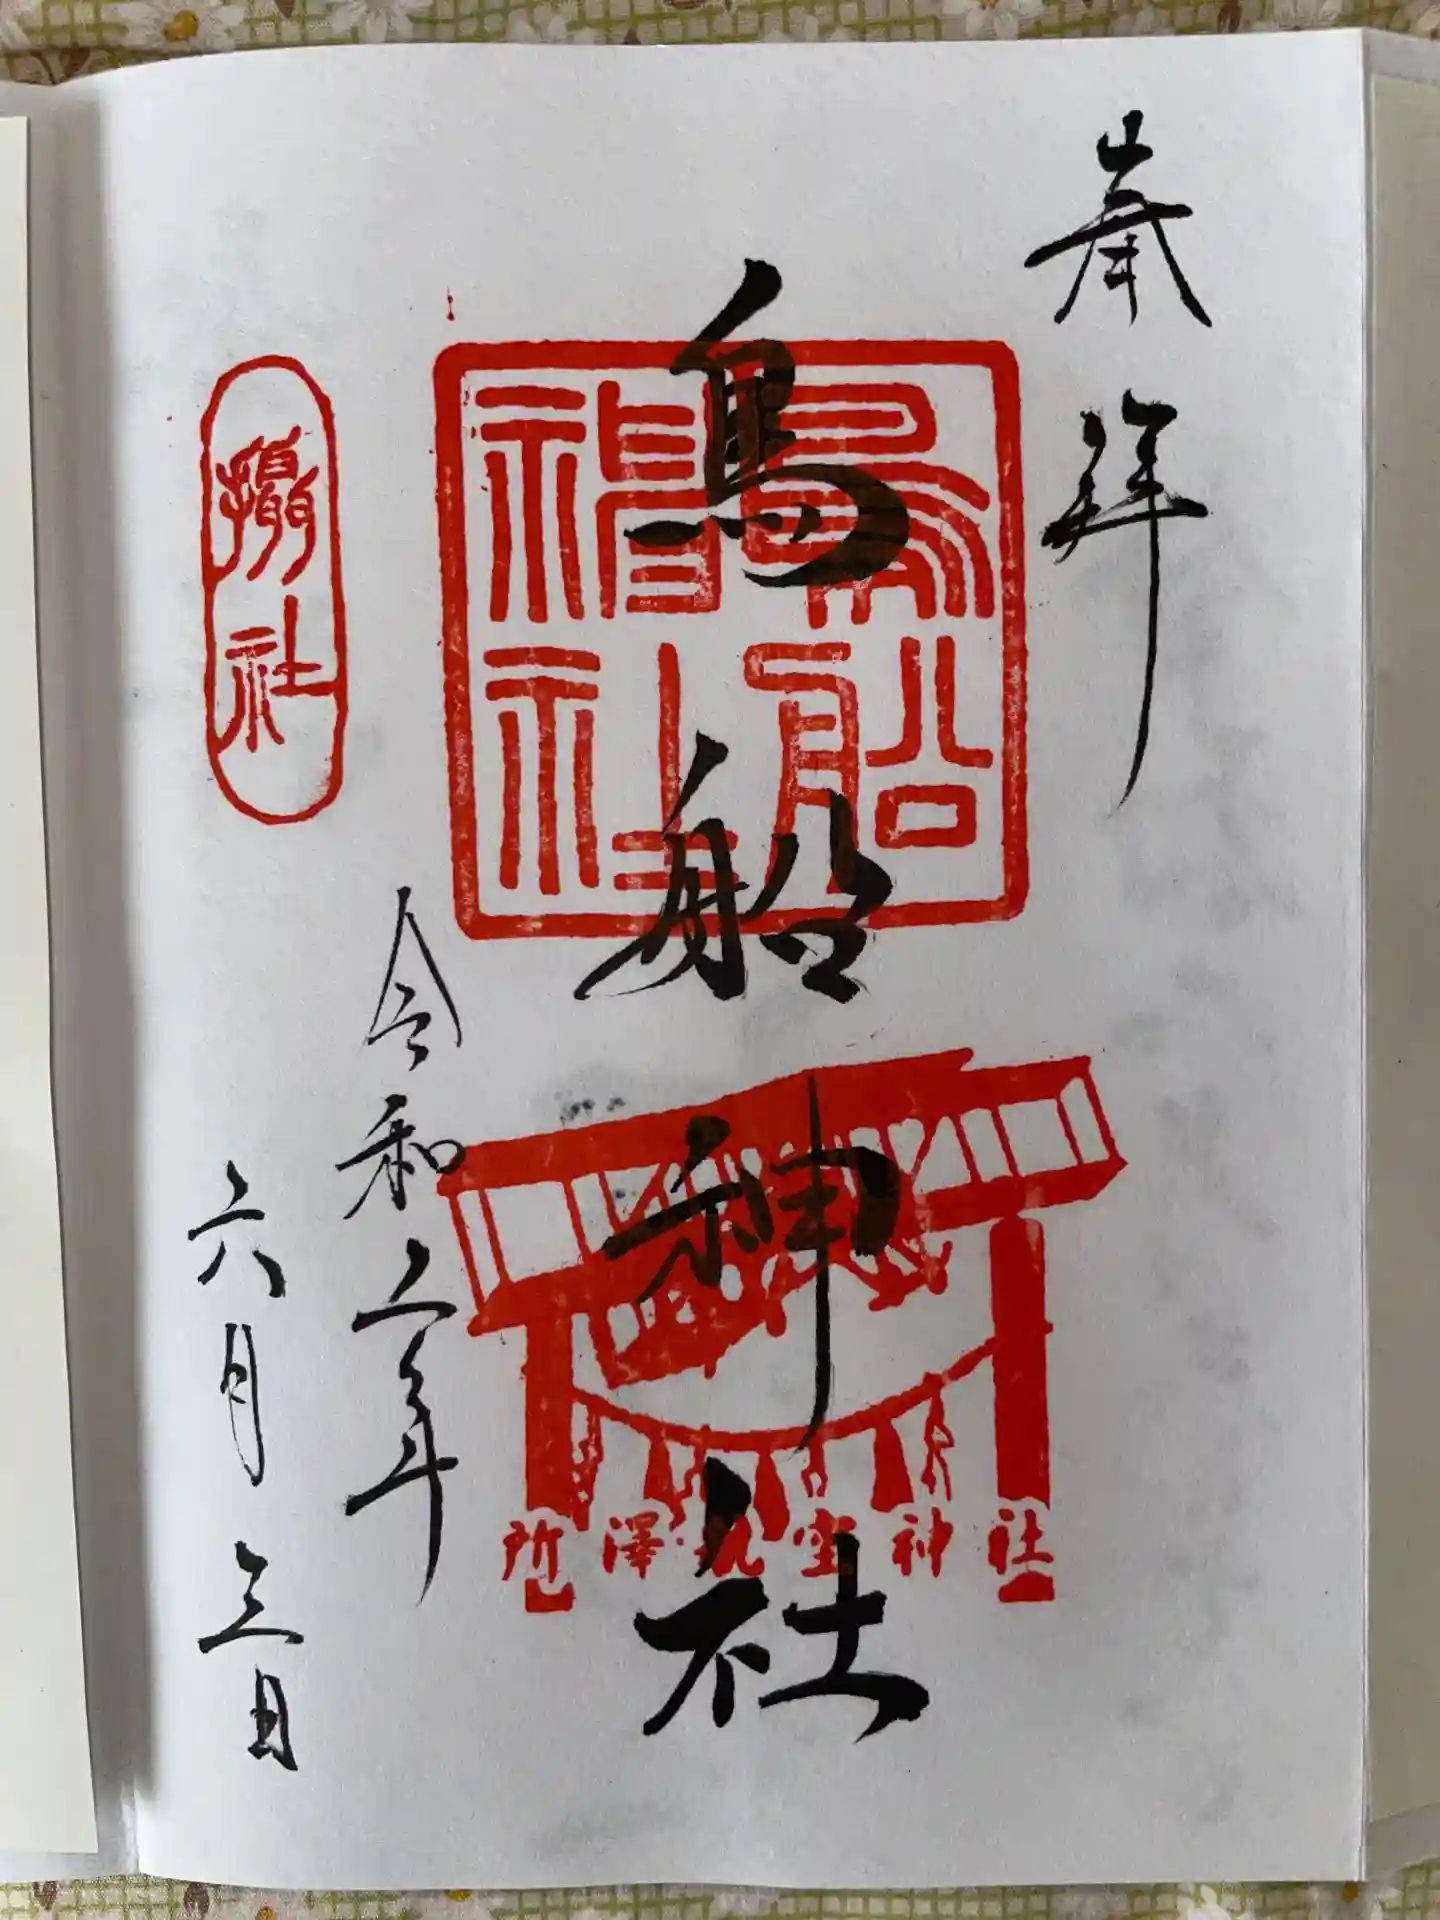 奉拝
鳥船神社
鳥船神社
所澤航空神社
令和二年
六月三日
摂社